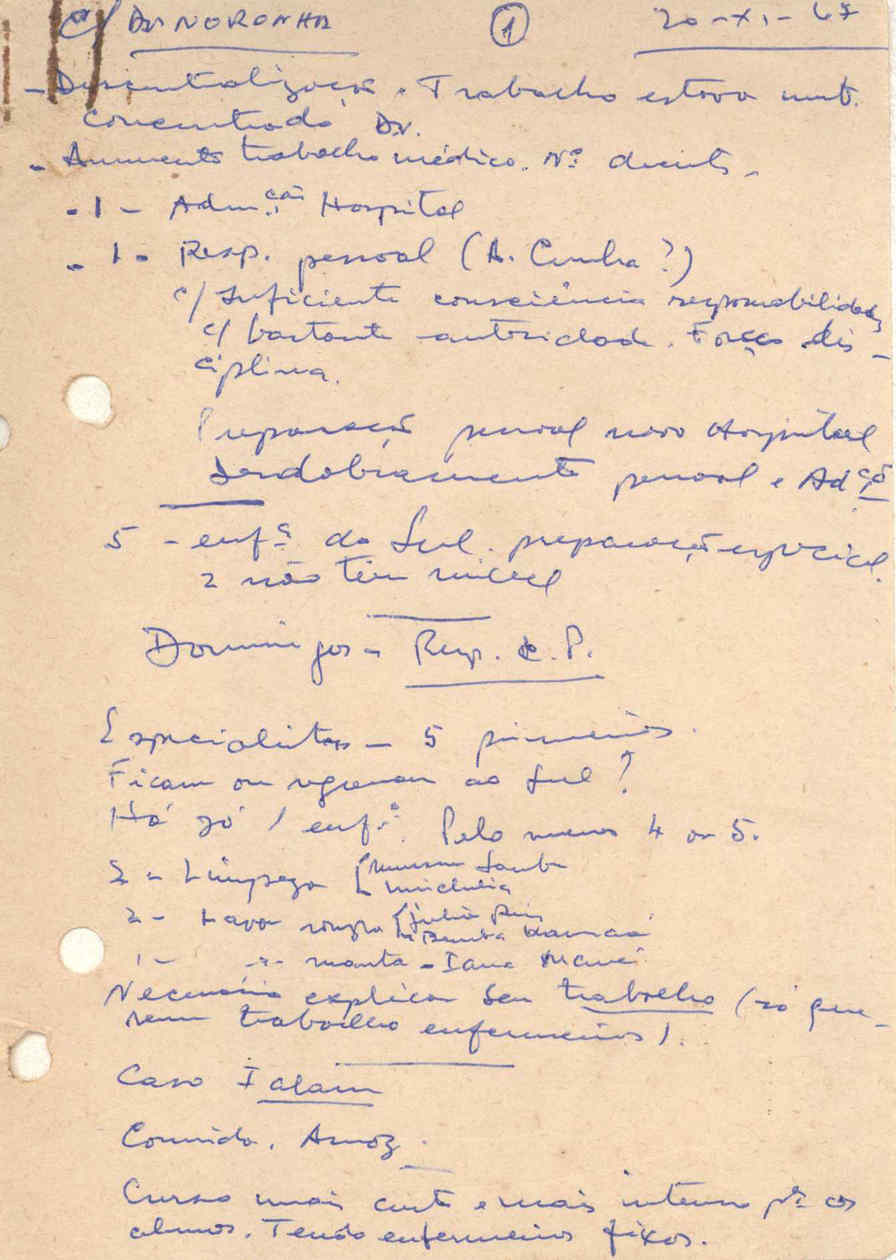 C/ DR NORONHA 1 20-XI-67
- Descentralização. Trabalho estava muito
concentrado Dr.
- Aumento trabalho médico. Nº doents -
- 1 - Adm.ção Hospital
- 1 - Resp. pessoal (A. Cunha?)
c/ suficiente consciência responsabilidades
c/ bastante autoridade. Força dis-
ciplina.
Preparação pessoal novo Hospital
Desdobramento pessoal e Adção
5 - enfª do Sul. preparação especial.
2 não têm nível
Domingos - Resp. C. P.
Especialistas - 5 primeiros.
Ficam ou regressam ao Sul?
Há só 1 enfª. Pelo menos 4 ou 5.
2 - Limpeza
2 - Lavar roupa
1 - -"- manta -
Necessário explicar seu trabalho (só que-
rem trabalho enfermeiros).
Caso
Comida. Arroz.
Curso mais curto e mais intenso pª os
alunos. Tendo enfermeiros fixos.